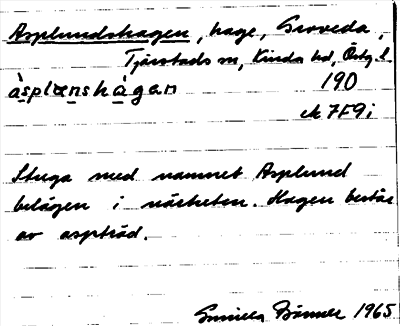 Asplundshagen, hage, Groveda,
Tjärstads sn, Kinda hd, Östg. l.
àsplænshàgan 190
ek 7F9i
Stuga med namnet Asplund
belägen i närheten. Hagen består
av aspträd.
Gunilla 1965